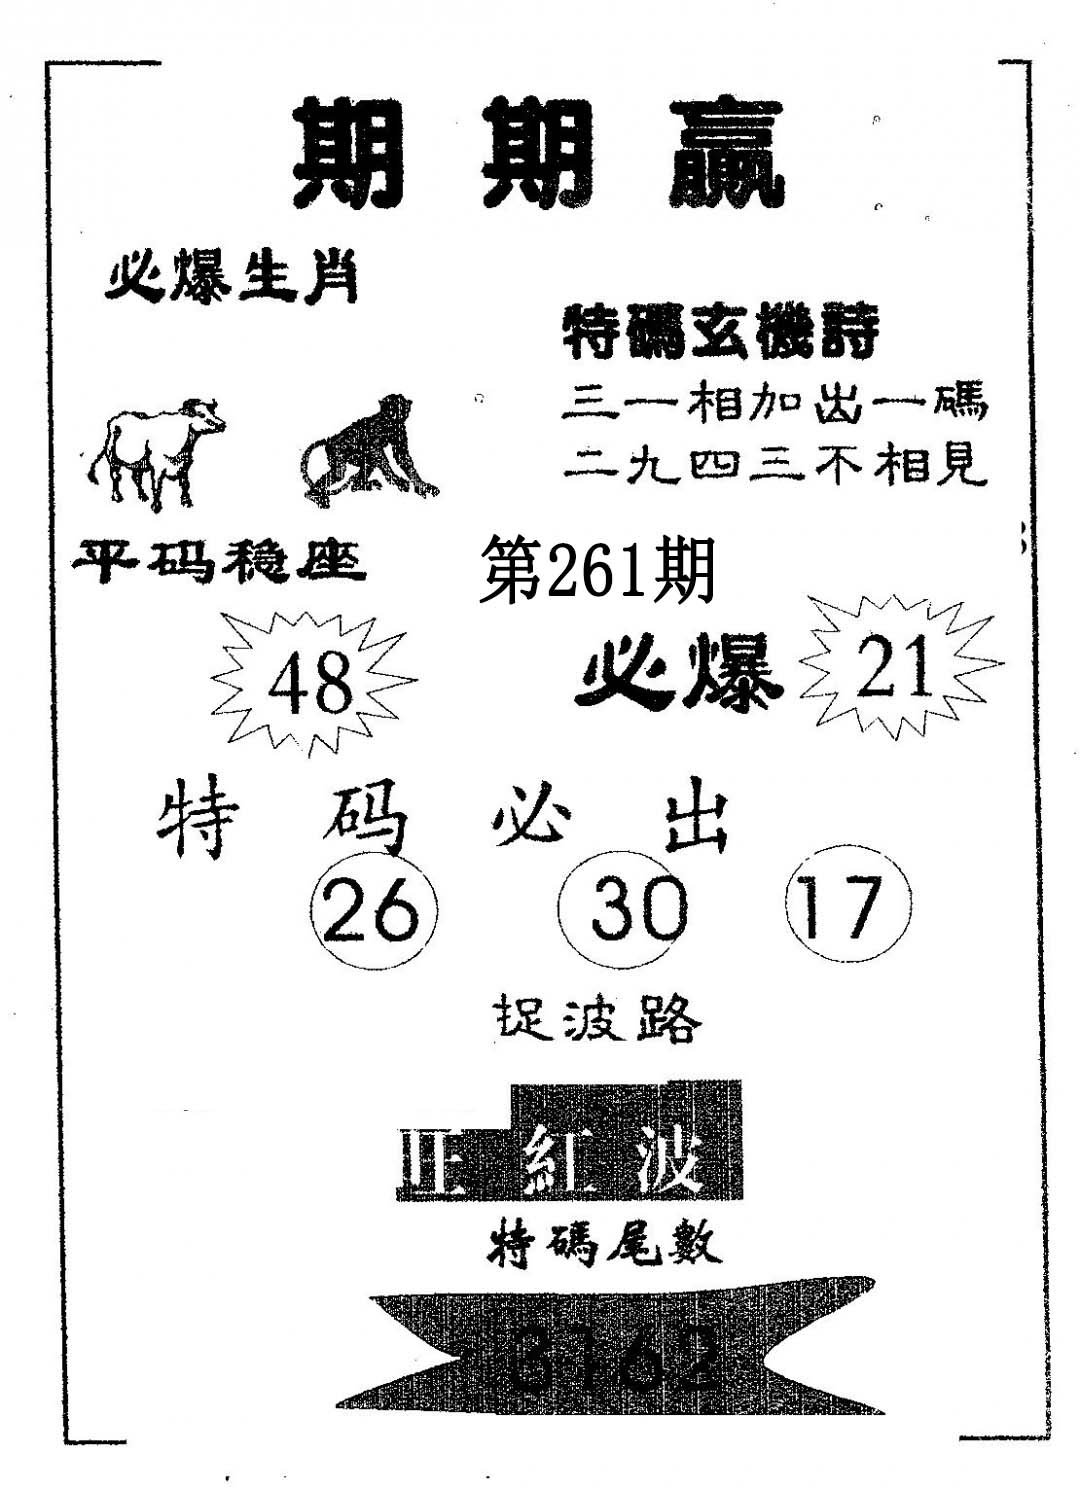 期期赢
必爆生肖
特碼玄機詩
三一相加出一碼
二九四三不相見
平码稳座
第261期
48
必爆 21
特码必出
26 30 17
捉波路
旺紅波
特碼尾數
3162